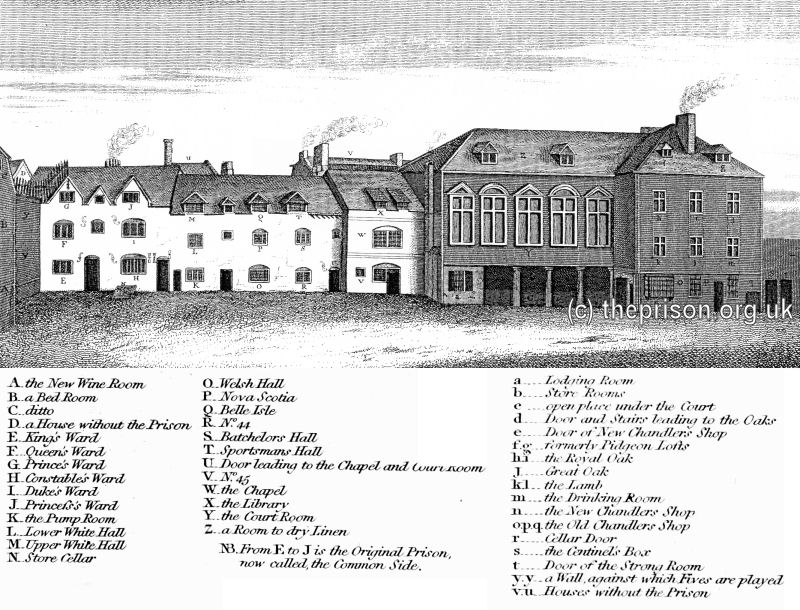 U
V
Z
G
J
M
P
Q
T
X
F
I
L
S
W
Y
E
H
K
O
R
V
(c) theprison.org.uk
A. the New Wine Room
B. a Bed Room
C. ditto
D. a House without the Prison
E. King's Ward
F. Queen's Ward
G. Prince's Ward
H. Constable's Ward
I. Duke's Ward
J. Princess's Ward
K. the Pump Room
L. Lower White Hall
M. Upper White Hall
N. Store Cellar
O. Welsh Hall
P. Nova Scotia
Q. Belle Isle
R. No. 44
S. Batchelors Hall
T. Sportsmans Hall
U. Door leading to the Chapel and Court Room
V. No. 45
W. the Chapel
X. the Library
Y. the Court Room
Z. a Room to dry Linen
NB. From E to J is the Original Prison,
now called, the Common Side.
a Lodging Room
b Store Rooms
c open place under the Court
d Door and Stairs leading to the Oaks
e Door of New Chandler's Shop
f.g. formerly Pidgeon Lofts
h.i the Royal Oak
J. Great Oak
k.l. the Lamb
m the Drinking Room
n the New Chandlers Shop
o.p.q. the Old Chandlers Shop
r Cellar Door
s the Centinel's Box
t Door of the Strong Room
y.y. a Wall, against which Fives are played
v.u. Houses without the Prison